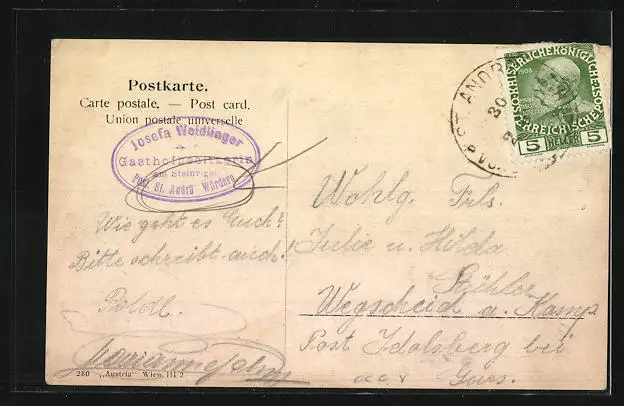 Postkarte.
Carte postale. — Post card.
Union postale universelle
Josefa Weidlinger
Gasthofbesitzerin
am Steinriegel
Post St. Andrä Wördern
Wie geht es Euch?
Bitte schreibt auch!
Poldl.
280 „Austria" Wien, III/2
ST. ANDR
30
KAISERLICHEKÖNIGLICHE
ÖSTERREICHISCHE
1908
5 HELLER 5
Wohlg. Frls.
Julie u. Hilda
Wegscheid a. Kamp
Post Idolsberg bei
Gars.